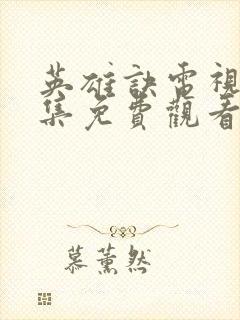 英雄訣電視
集免費觀看
慕薰然